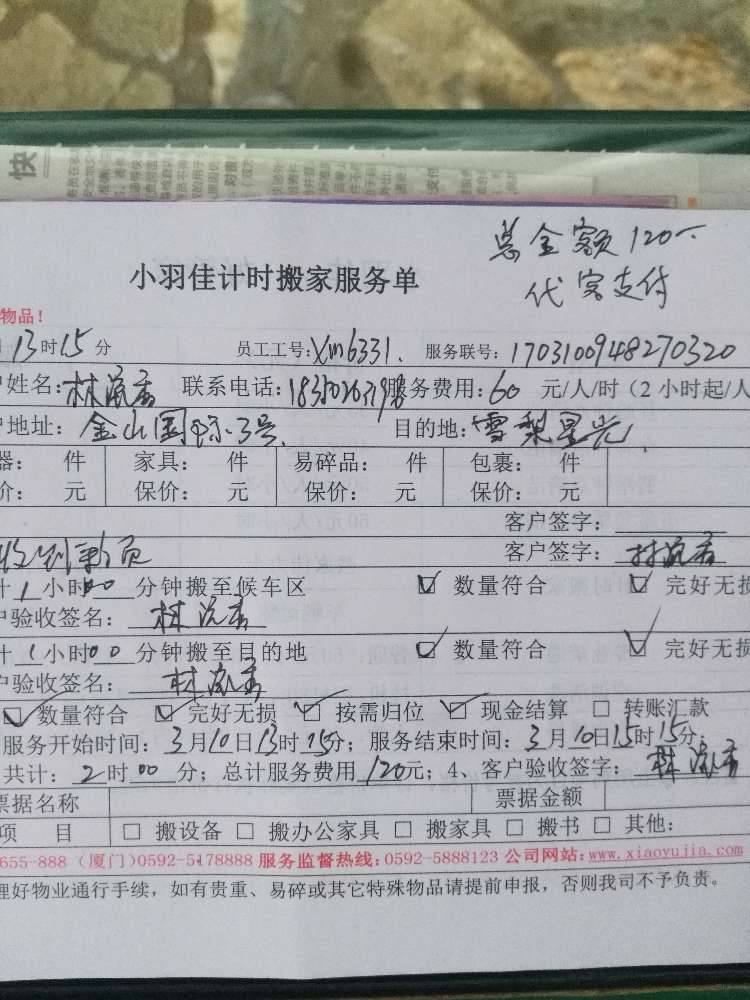 快
总金额120
代客支付
小羽佳计时搬家服务单
物品！
13时15分 员工工号：Xm6331. 服务联号：1703100948270320
姓名：林 联系电话： 服务费用：60 元/人/时（2 小时起/人
地址：金山国际3号 目的地：雪梨星光
器： 件 家具： 件 易碎品： 件 包裹： 件
价： 元 保价： 元 保价： 元 保价： 元
客户签字：
客户签字：林
计1小时00分钟搬至候车区 ☑ 数量符合 ☑ 完好无损
户验收签名：林
计1小时00分钟搬至目的地 ☑ 数量符合 ☑ 完好无损
户验收签名：林
☑ 数量符合 ☑ 完好无损 ☑ 按需归位 ☑ 现金结算 □ 转账汇款
服务开始时间：3月10日13时15分；服务结束时间：3月10日15时15分；
共计：2时00分；总计服务费用120元；4、客户验收签字：林
票据名称 票据金额
项 目 □ 搬设备 □ 搬办公家具 □ 搬家具 □ 搬书 □ 其他：
655-888（厦门）0592-5178888 服务监督热线：0592-5888123 公司网站：www.xiaoyujia.com
理好物业通行手续，如有贵重、易碎或其它特殊物品请提前申报，否则我司不予负责。